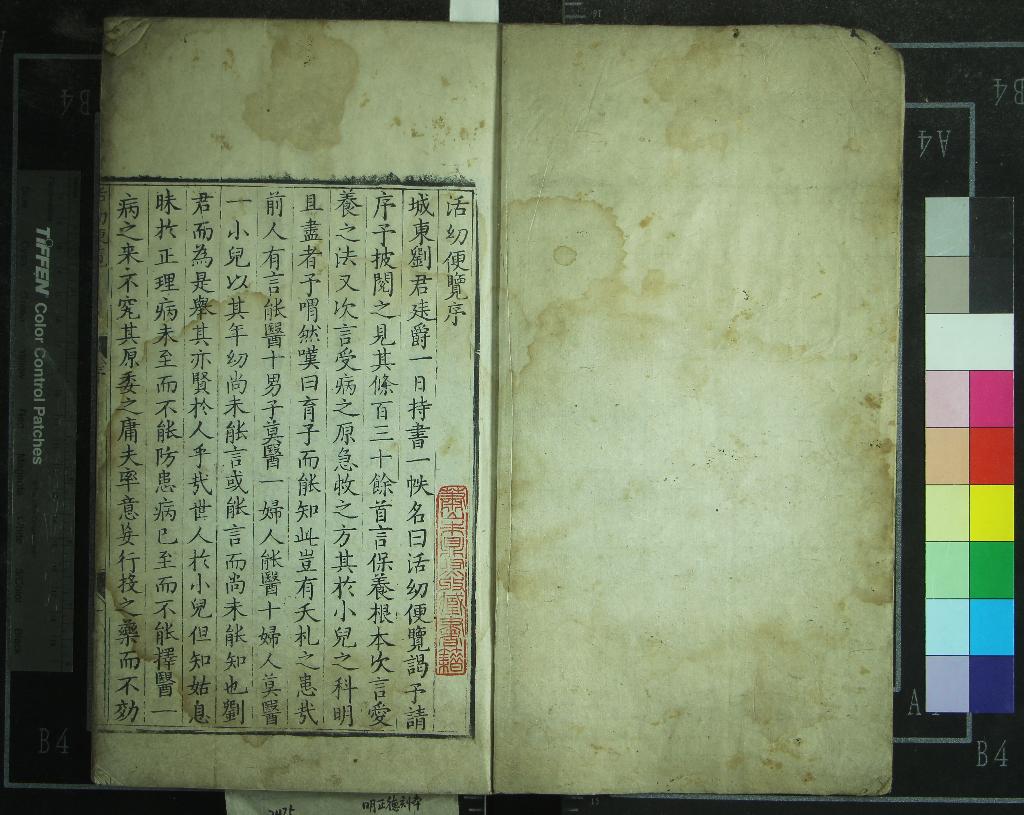 活幼便覽序
城東劉君廷爵一日持書一帙名曰活幼便覽謁予請
序予披閱之見其條百三十餘首言保養根本次言愛
養之法又次言受病之原急救之方其於小兒之科明
且盡者予喟然嘆曰育子而能知此豈有夭札之患哉
前人有言能醫十男子莫醫一婦人能醫十婦人莫醫
一小兒以其年幼尚未能言或能言而尚未能知也劉
君而為是舉其亦賢於人乎哉世人於小兒但知姑息
昧於正理病未至而不能防患病已至而不能擇醫一
病之来不究其原委之庸夫率意妄行投之藥而不効
藏書籍
明正德刻本
TIFFEN Color Control Patches
B4
A4
B4
B4
A4
B4